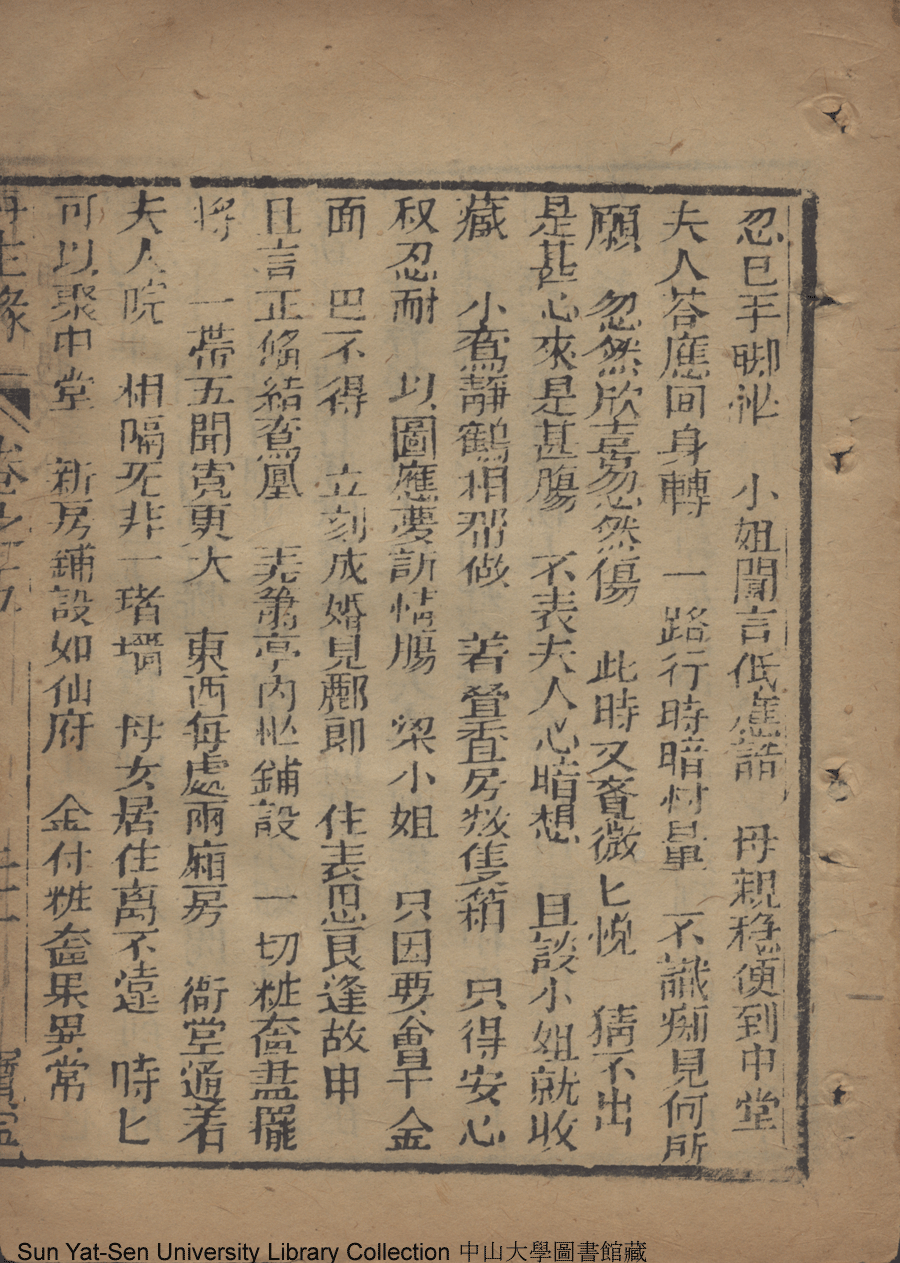 忍已手脚 小姐聞言低應諾 母親穩便到中堂
夫人荅應回身轉 一路行時暗忖量 不識痴見何所
願 忽然欣喜忽然傷 此時又覺微匕悅 猜不出
是甚心來是甚腸 不表夫人心暗想 且談小姐就收
藏 小鴛靜鶴相帮做 着疊香房数隻箱 只得安心
权忍耐 以圖應夢訪情腸 梁小姐 只因要會干金
面 巴不得 立刻成婚見酈郎 住表思良逢故申
且言正偹結鴛凰 弄簫亭內忙鋪設 一切粧奩盡擺
将 一帶五間寬更大 東西每處兩廂房 衖堂通着
夫人院 相隔旡非一堵墻 母女居住离不遠 時匕
可以聚中堂 新房鋪設如仙府 金付粧奩果異常
再生緣 卷之十九 寶寧
Sun Yat-Sen University Library Collection 中山大學圖書館藏